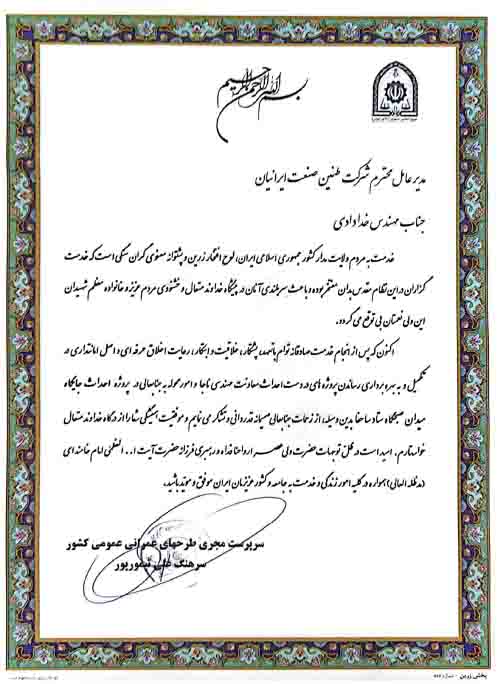 بسم الله الرحمن الرحیم
مدیر عامل محترم شرکت طنین صنعت ایرانیان
جناب مهندس خدادادی
خدمت به مردم ولایت مدار کشور جمهوری اسلامی ایران، لوح افتخار زرین و پشتوانه معنوی گران سنگی است که خدمت
گزاران در این نظام مقدس بدان مفتخر بوده و باعث سربلندی آنان در پیشگاه خداوند متعال و خشنودی مردم عزیز و خانواده معظم شهیدان
این ولی نعمتان بی توقع می گردد.
اکنون که پس از انجام خدمت صادقانه توام با تعهد، پشتکار، خلاقیت و ابتکار، رعایت اخلاق حرفه ای و اصل امانتداری در
تکمیل و به بهره برداری رساندن پروژه های در دست احداث معاونت مهندسی ناجا و امور محوله به جنابعالی در پروژه احداث جایگاه
میدان صبحگاه ستاد ساحفا بدین وسیله از زحمات جنابعالی صمیمانه قدردانی و تشکر می نمایم و موفقیت همیشگی شما را از درگاه خداوند متعال
خواستارم. امید است در ظل توجهات حضرت ولی عصر ارواحنا فداه و رهبری فرزانه حضرت آیت ا... العظمی امام خامنه ای
(مدظله العالی) همواره در کلیه امور زندگی و خدمت به جامعه و کشور عزیزمان ایران موفق و موید باشید.
سرپرست مجری طرحهای عمرانی عمومی کشور
سرهنگ علی تیمورپور
پخش زرین